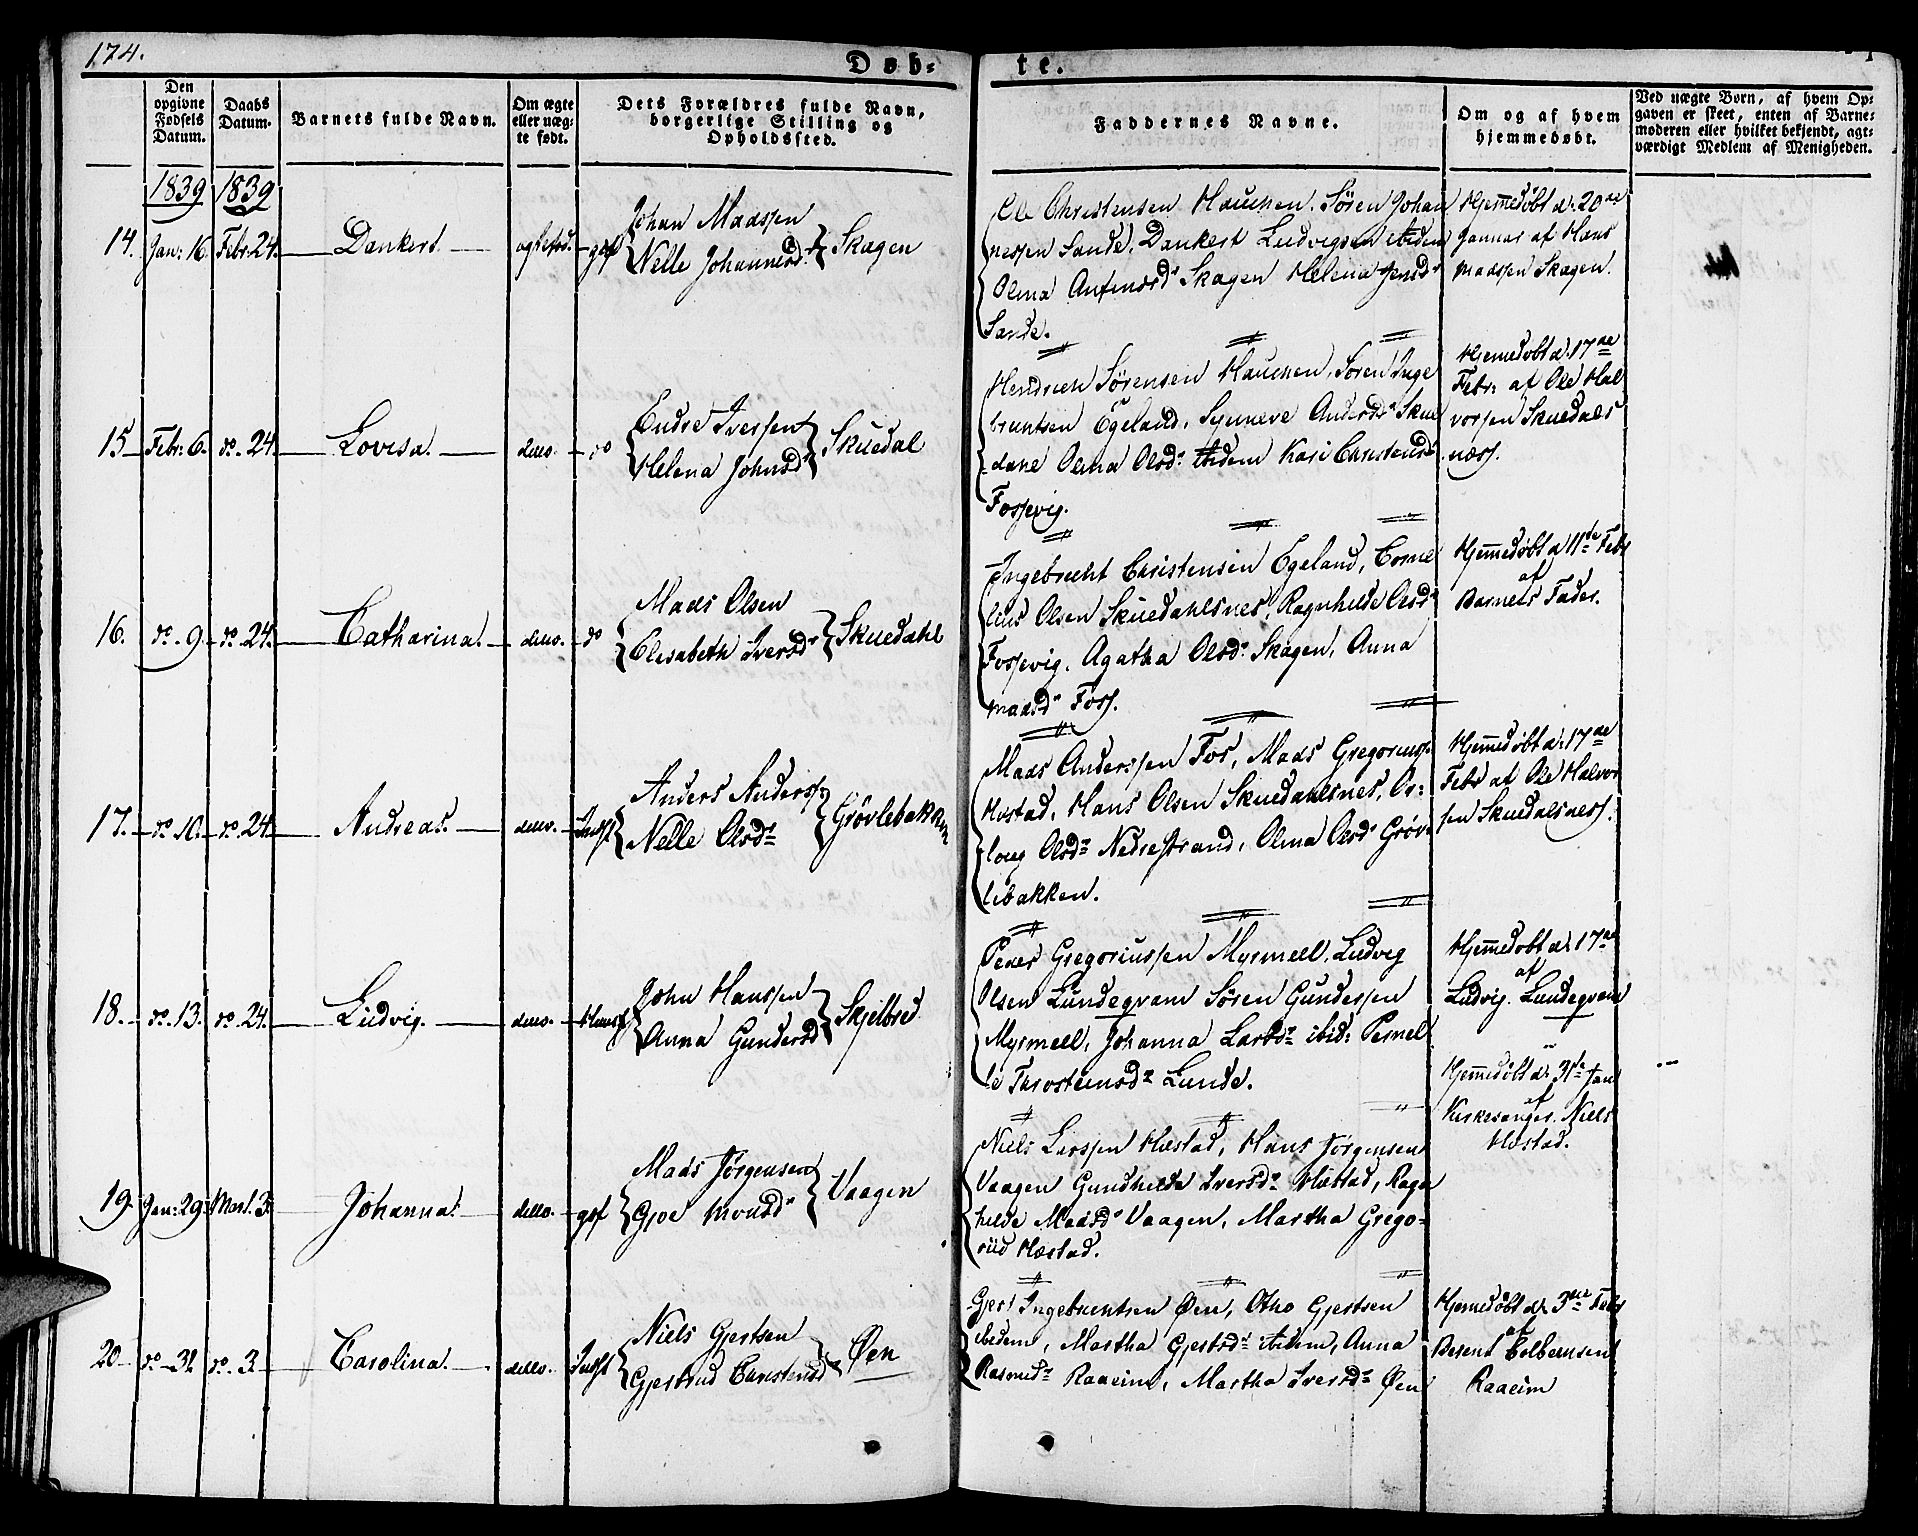 174.
Døb-
te.
Den opgivne Fødsels Datum.
Daabs Datum.
Barnets fulde Navn.
Om ægte eller uægte født.
Dets Forældres fulde Navn, borgerlige Stilling og Opholdssted.
Faddernes Navne.
Om og af hvem hjemmedøbt.
Ved uægte Børn, af hvem Op-
gaven er skeet, enten af Barne-
moderen eller hvilket bekjendt, agt-
værdigt Medlem af Menigheden.
1839 1839
14. Jan: 16. Febr. 24. Dankert. gsf
Johan Madssen
Nelle Johannesd: Skagen
Ole Christensen Hauken. Søren Johan
nessen Sande, Dankert Ludvigsen ibidem
Olina Skagen Helena Jensd:
Sande.
Hjemedøbt d: 20de
Januar af Hans
Madssen Skagen.
15 Febr: 6. do. 24. Lovisa. detto. do
Endre Iverssen
Helena Johnsd: Skuedal
Hendrich Sørensen Haucken, Søren Inge
brictsen Egeland, Synneve Andersd: Skue
dahl Olina Olsd: ibidem Kari Christensd:
Fossevig.
Hjemedøbt d: 17de
Febr: af Ole Hal
vorsen Skuedals
næss.
16. do. 9. do. 24. Catharina. detto. do
Mads Olsen
Elisabeth Iversd: Skuedahl
Ingebrecht Christensen Egeland, Corne
lius Olsen Skuedahlsnes, Ragnhilde Olsd:
Fossevig. Agatha Olsd: Skagen, Anna
Madsd: Foss.
Hjemmedøbt d 11te Febr
af
Barnets Fader.
17. do. 10. do. 24. Andreas. detto. Indst
Anders Anderss:
Nelle Olsd: Grövlebakken
Mads Anderssen Fos, Mads Gregoriuss:
Hæstad, Hans Olsen Skuedahlsnes, Os-
loug Olsd: Nedrestrand, Olina Olsd: Gröv-
lebakken.
Hjemmedøbt d: 17de
Febr af Ole Halvor
sen Skuedalsness.
18. do. 13. do. 24. Ludvig. detto. Huusf
John Hanssen
Anna Gundersd Skjelbred
Peder Gregoriussen Myrmell, Ludvig
Olsen Lundeqvam Søren Gunderssen
Myrmell, Johanna Larsd: ibid: Pernel
le Throsteinsd: Lunde.
Hjemmedøbt d: 17de
af
Ludvig. Lundeqvam
19. Jan: 29. Mart. 3. Johanna. detto. gsf
Mads Jørgensen
Gjoe Monsd: Vaagen
Niels Larssen Hæstad, Hans Jørgensen
Vaagen Gundhilde Iversd: Hæstad, Ragn
hilde Madsd: Vaagen, Martha Grego-
riid Hæstad.
Hjemmedøbt d: 31te Jan
af
Kirkesanger. Niels
Hæstad.
20 do. 31 do. 3. Carolina. detto. Indst
Niels Gjertsen
Gjertrud Christensd Øen
Gjert Ingebrictsen Øen, Otho Gjertsen
ibidem, Martha Gjertsd: ibidem, Anna
Rasmusd: Raaeim, Martha Iversd: Øen
Hjemedøbt d: 3die Febr
af
Berent Colbensen
Raaeim